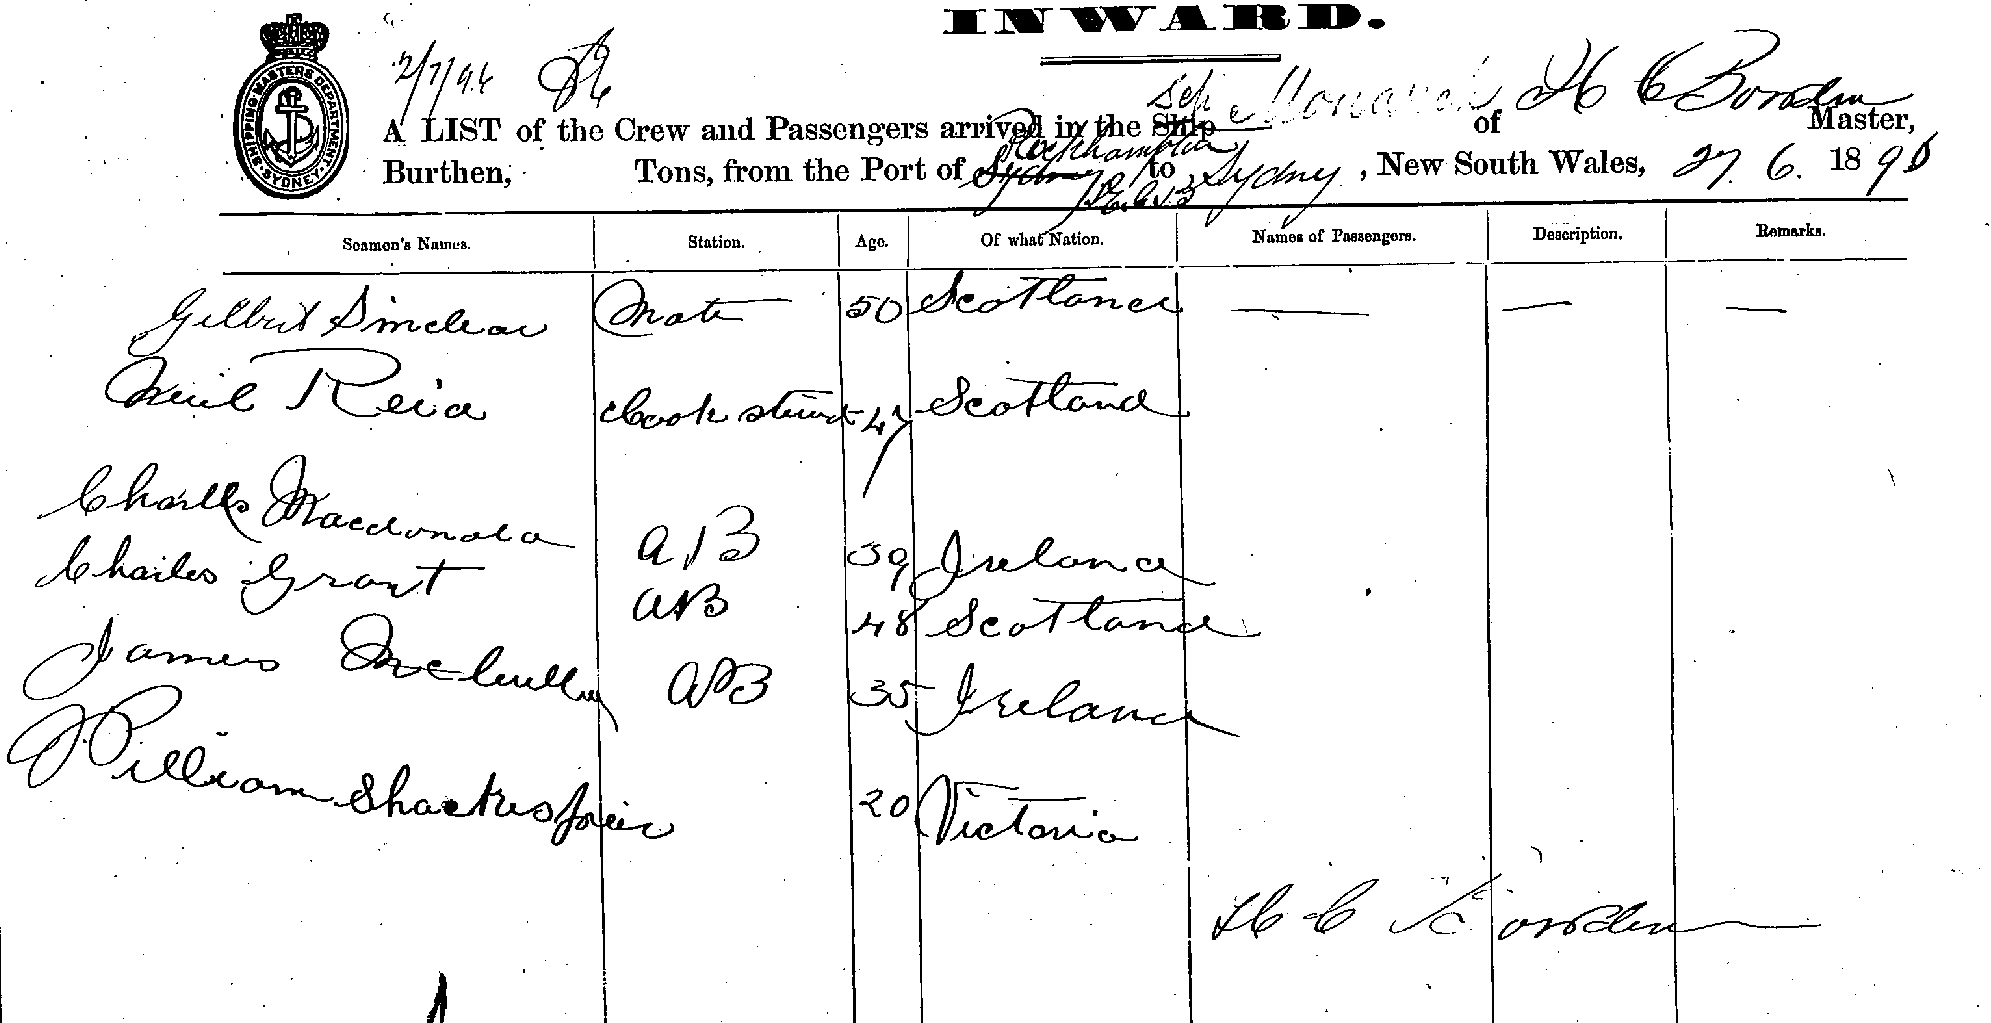 INWARD.
SHIPPING MASTERS DEPARTMENT SYDNEY
2/7/96
Sch Monarch H C Bowden
A LIST of the Crew and Passengers arrived in the Ship of Master,
Rockhampton
Burthen, Tons, from the Port of Sydney to Sydney, New South Wales, 27. 6. 1896
Seamen's Names. Station. Age. Of what Nation. Names of Passengers. Description. Remarks.
Gilbert Sinclair Mate 50 Scotland — — —
Neil Reid Cook steward 47 Scotland
Charles Macdonald AB 39 Ireland
Charles Grant AB 48 Scotland
James AB 35 Ireland
William 20 Victoria
H C Bowden